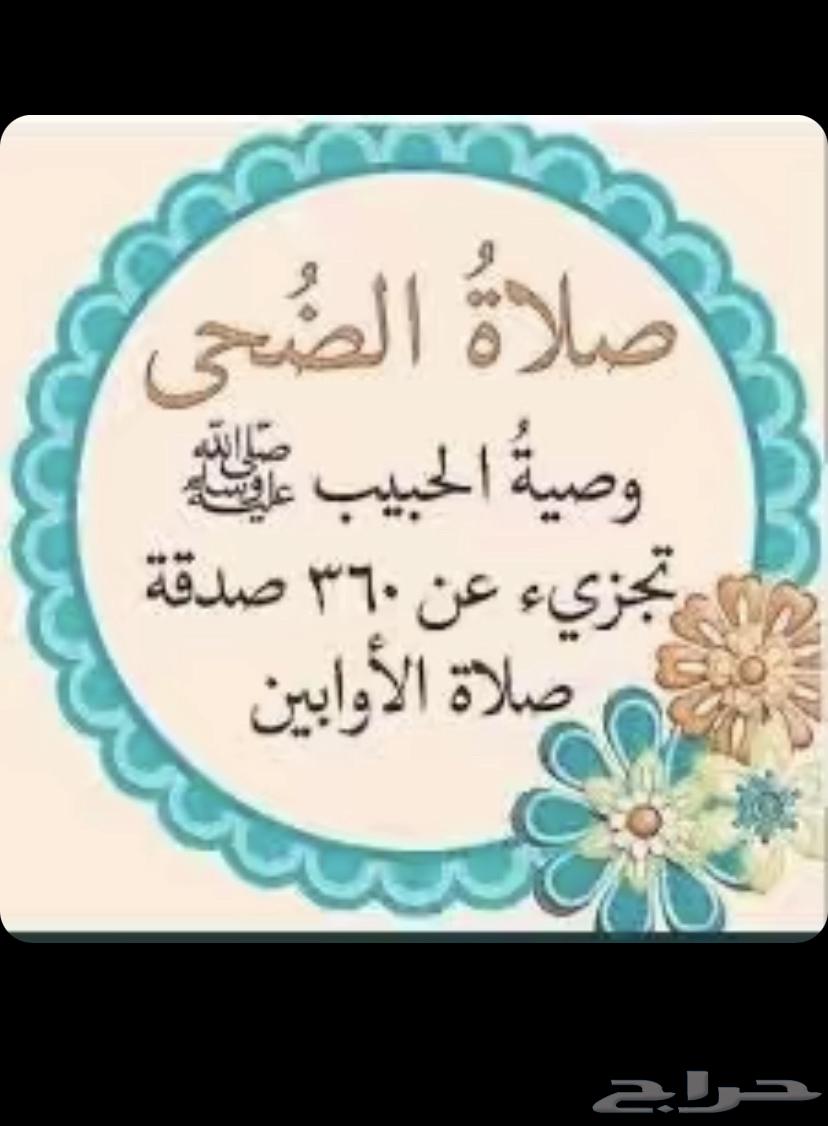 صلاةُ الضُحى
وصيةُ الحبيب ﷺ
تجزيء عن ٣٦٠ صدقة
صلاة الأوابين
حراج